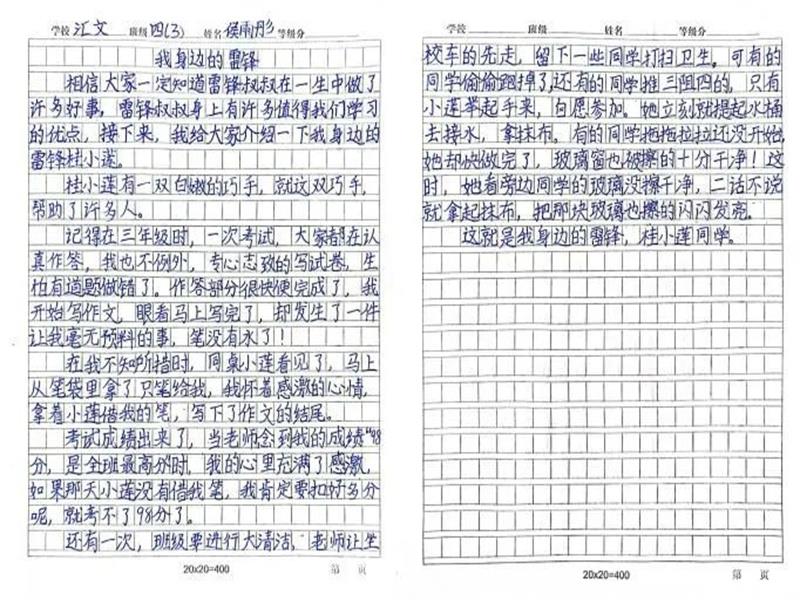 学校 汇文 班级 四(3) 姓名 侯雨彤 等级分
我身边的雷锋
相信大家一定知道雷锋叔叔在一生中做了
许多好事，雷锋叔叔身上有许多值得我们学习
的优点，接下来，我给大家介绍一下我身边的
雷锋桂小莲。
桂小莲有一双白嫩的巧手，就这双巧手，
帮助了许多人。
记得在三年级时，一次考试，大家都在认
真作答，我也不例外，专心志致的写试卷，生
怕有道题做错了。作答部分很快便完成了，我
开始写作文，眼看马上写完了，却发生了一件
让我毫无预料的事，笔没有水了！
在我不知所措时，同桌小莲看见了，马上
从笔袋里拿了只笔给我，我怀着感激的心情，
拿着小莲借我的笔，写下了作文的结尾。
考试成绩出来了，当老师念到我的成绩“98
分，是全班最高分时，我的心里充满了感激，
如果那天小莲没有借我笔，我肯定要扣好多分
呢，就考不了98分了。
还有一次，班级要进行大清洁，老师让坐
20x20=400 第 页
学校 班级 姓名 等级分
校车的先走，留下一些同学打扫卫生。可有的
同学偷偷跑掉了，还有的同学推三阻四的，只有
小莲举起手来，自愿参加。她立刻就提起水桶
去接水，拿抹布。有的同学拖拖拉拉还没开始，
她却快做完了，玻璃窗也被擦的十分干净！这
时，她看旁边同学的玻璃没擦干净，二话不说
就拿起抹布，把那块玻璃也擦的闪闪发亮。
这就是我身边的雷锋，桂小莲同学。
20x20=400 第 页